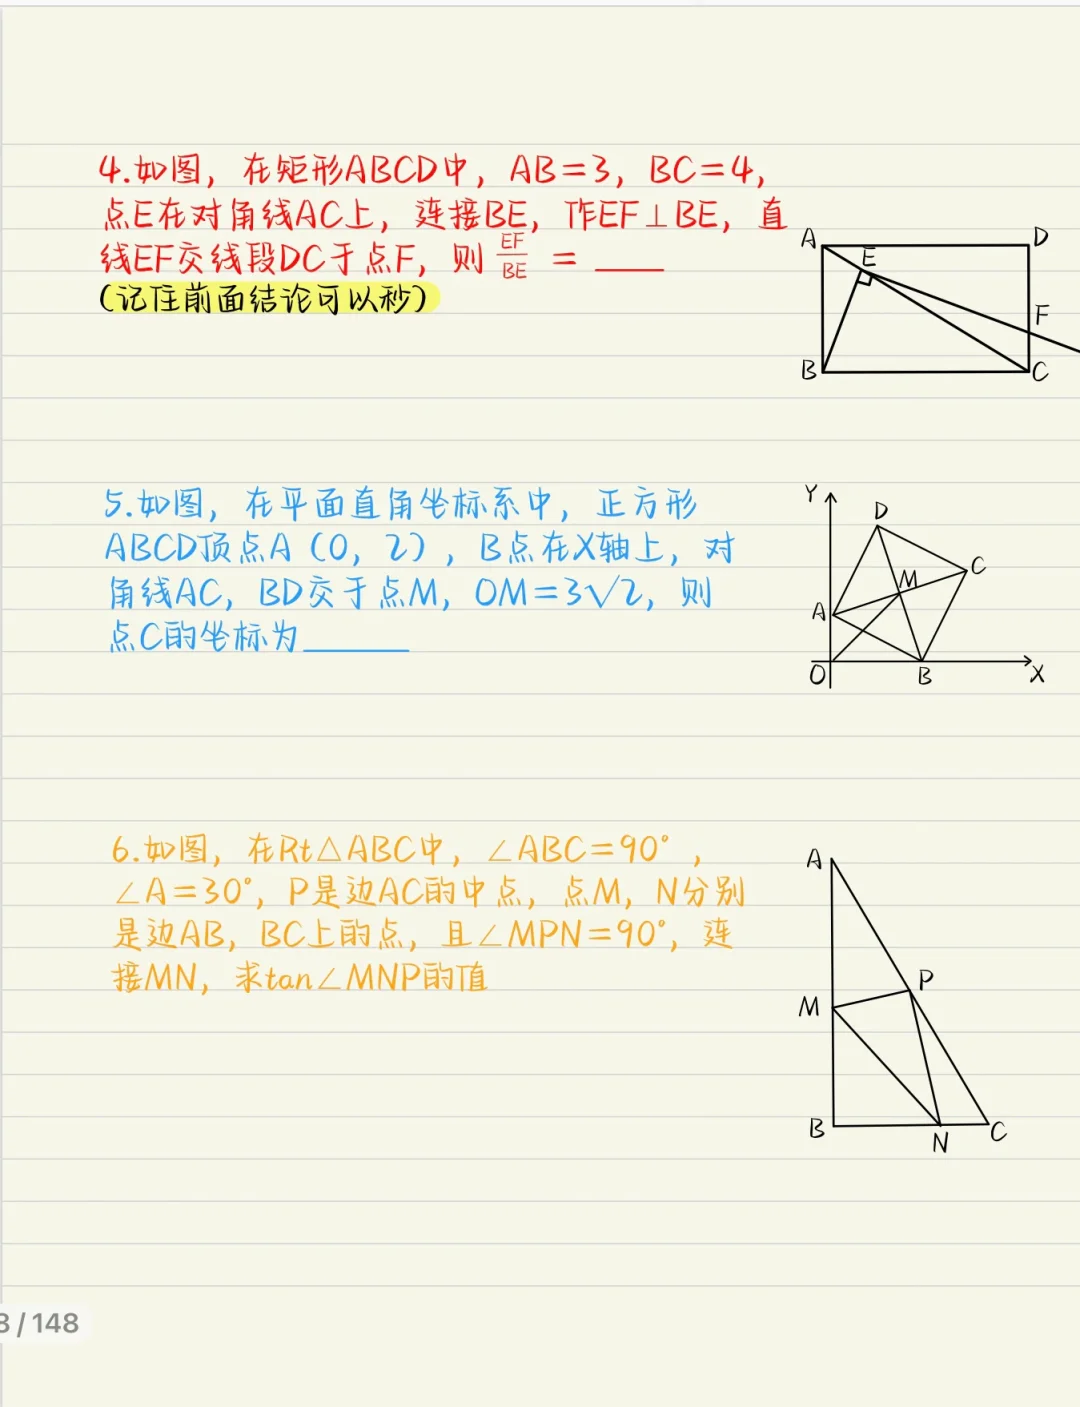 4.如图，在矩形ABCD中，AB=3，BC=4，
点E在对角线AC上，连接BE，作EF⊥BE，直
线EF交线段DC于点F，则 EF/BE = ____
(记住前面结论可以秒)
A
D
E
F
B
C
5.如图，在平面直角坐标系中，正方形
ABCD顶点A（0，2），B点在X轴上，对
角线AC，BD交于点M，OM=3√2，则
点C的坐标为______
Y
D
C
M
A
O
B
X
6.如图，在Rt△ABC中，∠ABC=90°，
∠A=30°，P是边AC的中点，点M，N分别
是边AB，BC上的点，且∠MPN=90°，连
接MN，求tan∠MNP的值
A
P
M
B
N
C
3/148